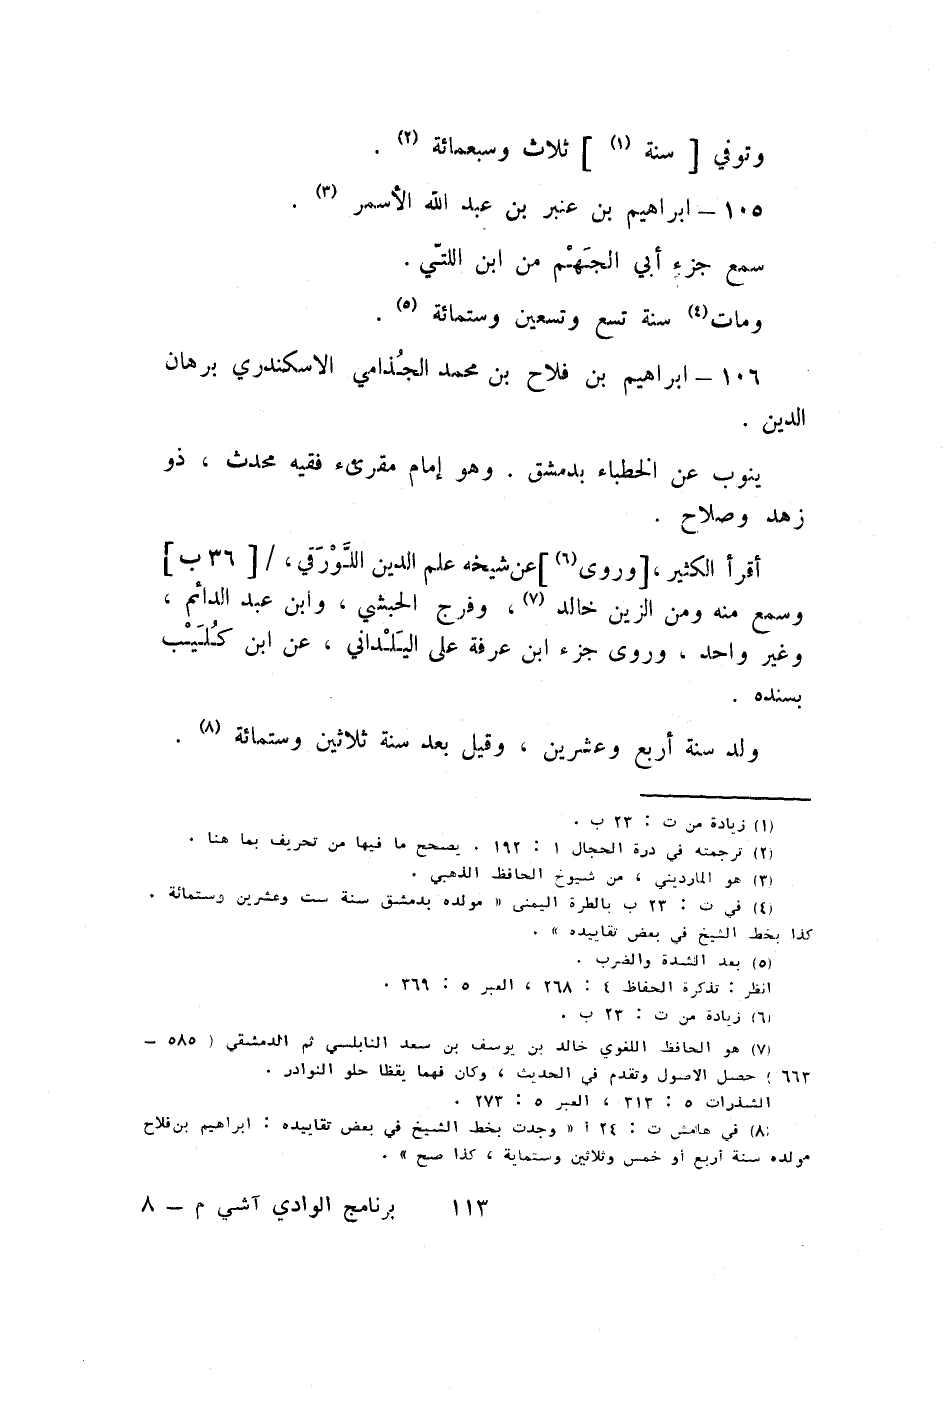 وتوفي [ سنة (١) ] ثلاث وسبعمائة (٢) .
١٠٥ – ابراهيم بن عنبر بن عبد الله الأسمر (٣) .
سمع جزء أبي الجَهْم من ابن اللتّي .
ومات(٤) سنة تسع وتسعين وستمائة (٥) .
١٠٦ – ابراهيم بن فلاح بن محمد الجُذامي الاسكندري برهان
الدين .
ينوب عن الخطباء بدمشق . وهو إمام مقرىء فقيه محدث ، ذو
زهد وصلاح .
أقرأ الكثير ، [وروى(٦)] عن شيخه علم الدين اللَّوْرَقي ، / [ ٣٦ ب]
وسمع منه ومن الزين خالد (٧) ، وفرج الحبشي ، وابن عبد الدائم ،
وغير واحد ، وروى جزء ابن عرفة على اليَلْداني ، عن ابن كُلَيْب
بسنده .
ولد سنة أربع وعشرين ، وقيل بعد سنة ثلاثين وستمائة (٨) .
(١) زيادة من ت : ٢٣ ب .
(٢) ترجمته في درة الحجال ١ : ١٩٢ . يصحح ما فيها من تحريف بما هنا .
(٣) هو المارديني ، من شيوخ الحافظ الذهبي .
(٤) في ت : ٢٣ ب بالطرة اليمنى « مولده بدمشق سنة ست وعشرين وستمائة .
كذا بخط الشيخ في بعض تقاييده » .
(٥) بعد الشدة والضرب .
انظر : تذكرة الحفاظ ٤ : ٢٦٨ ، العبر ٥ : ٣٦٩ .
(٦) زيادة من ت : ٢٣ ب .
(٧) هو الحافظ اللغوي خالد بن يوسف بن سعد النابلسي ثم الدمشقي ( ٥٨٥ –
٦٦٣ ) حصل الاصول وتقدم في الحديث ، وكان فهما يقظا حلو النوادر .
الشذرات ٥ : ٣١٣ ، العبر ٥ : ٢٧٣ .
(٨) في هامش ت : ٢٤ أ « وجدت بخط الشيخ في بعض تقاييده : ابراهيم بن فلاح
مولده سنة أربع أو خمس وثلاثين وستماية ، كذا صح » .
١١٣ برنامج الوادي آشي م – ٨